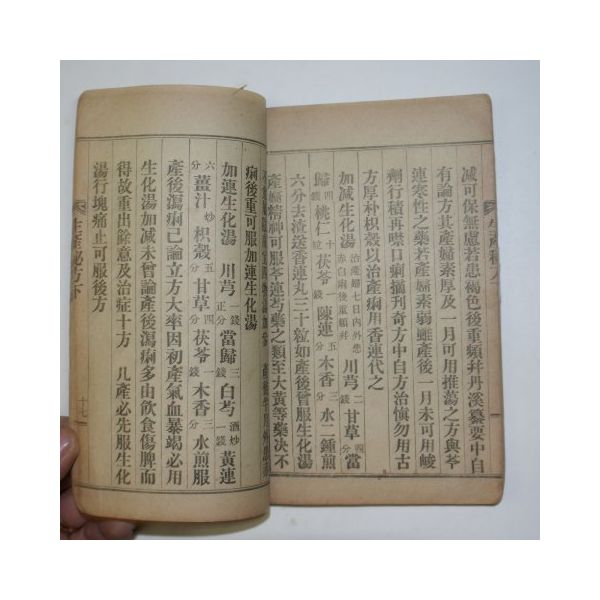 减可保無慮若患褐色後重頻幷丹溪纂要中自
有論方其產婦素厚及一月可用推蕩之方與芩
連寒性之藥若產婦素弱雖產後一月未可用峻
劑行積再噤口痢摘刋奇方中自方治愼勿用古
方厚朴枳殼以治產痢用香連代之
加减生化湯 治產婦七日內外患赤白痢後重頻幷 川芎二錢 甘草四分 當
歸四錢 桃仁十粒 茯苓一錢 陳連五分 木香三分 水二鍾煎
六分去渣送香連丸三十粒如產後曾服生化湯
產婦精神可服芩連芍藥之類至大黃等藥决不
痢後重可服加連生化湯
加連生化湯 川芎一錢正 當歸三錢 白芍酒炒一錢 黃連
六分 薑汁炒 枳殼五分 甘草四分 茯苓一錢 木香三分 水煎服
產後瀉痢已論立方大率因初產氣血暴竭必用
生化湯加减未曾論產後瀉痢多由飮食傷脾而
得故重出餘意及治症十方 凡產必先服生化
湯行塊痛止可服後方
生產秘方下
十七